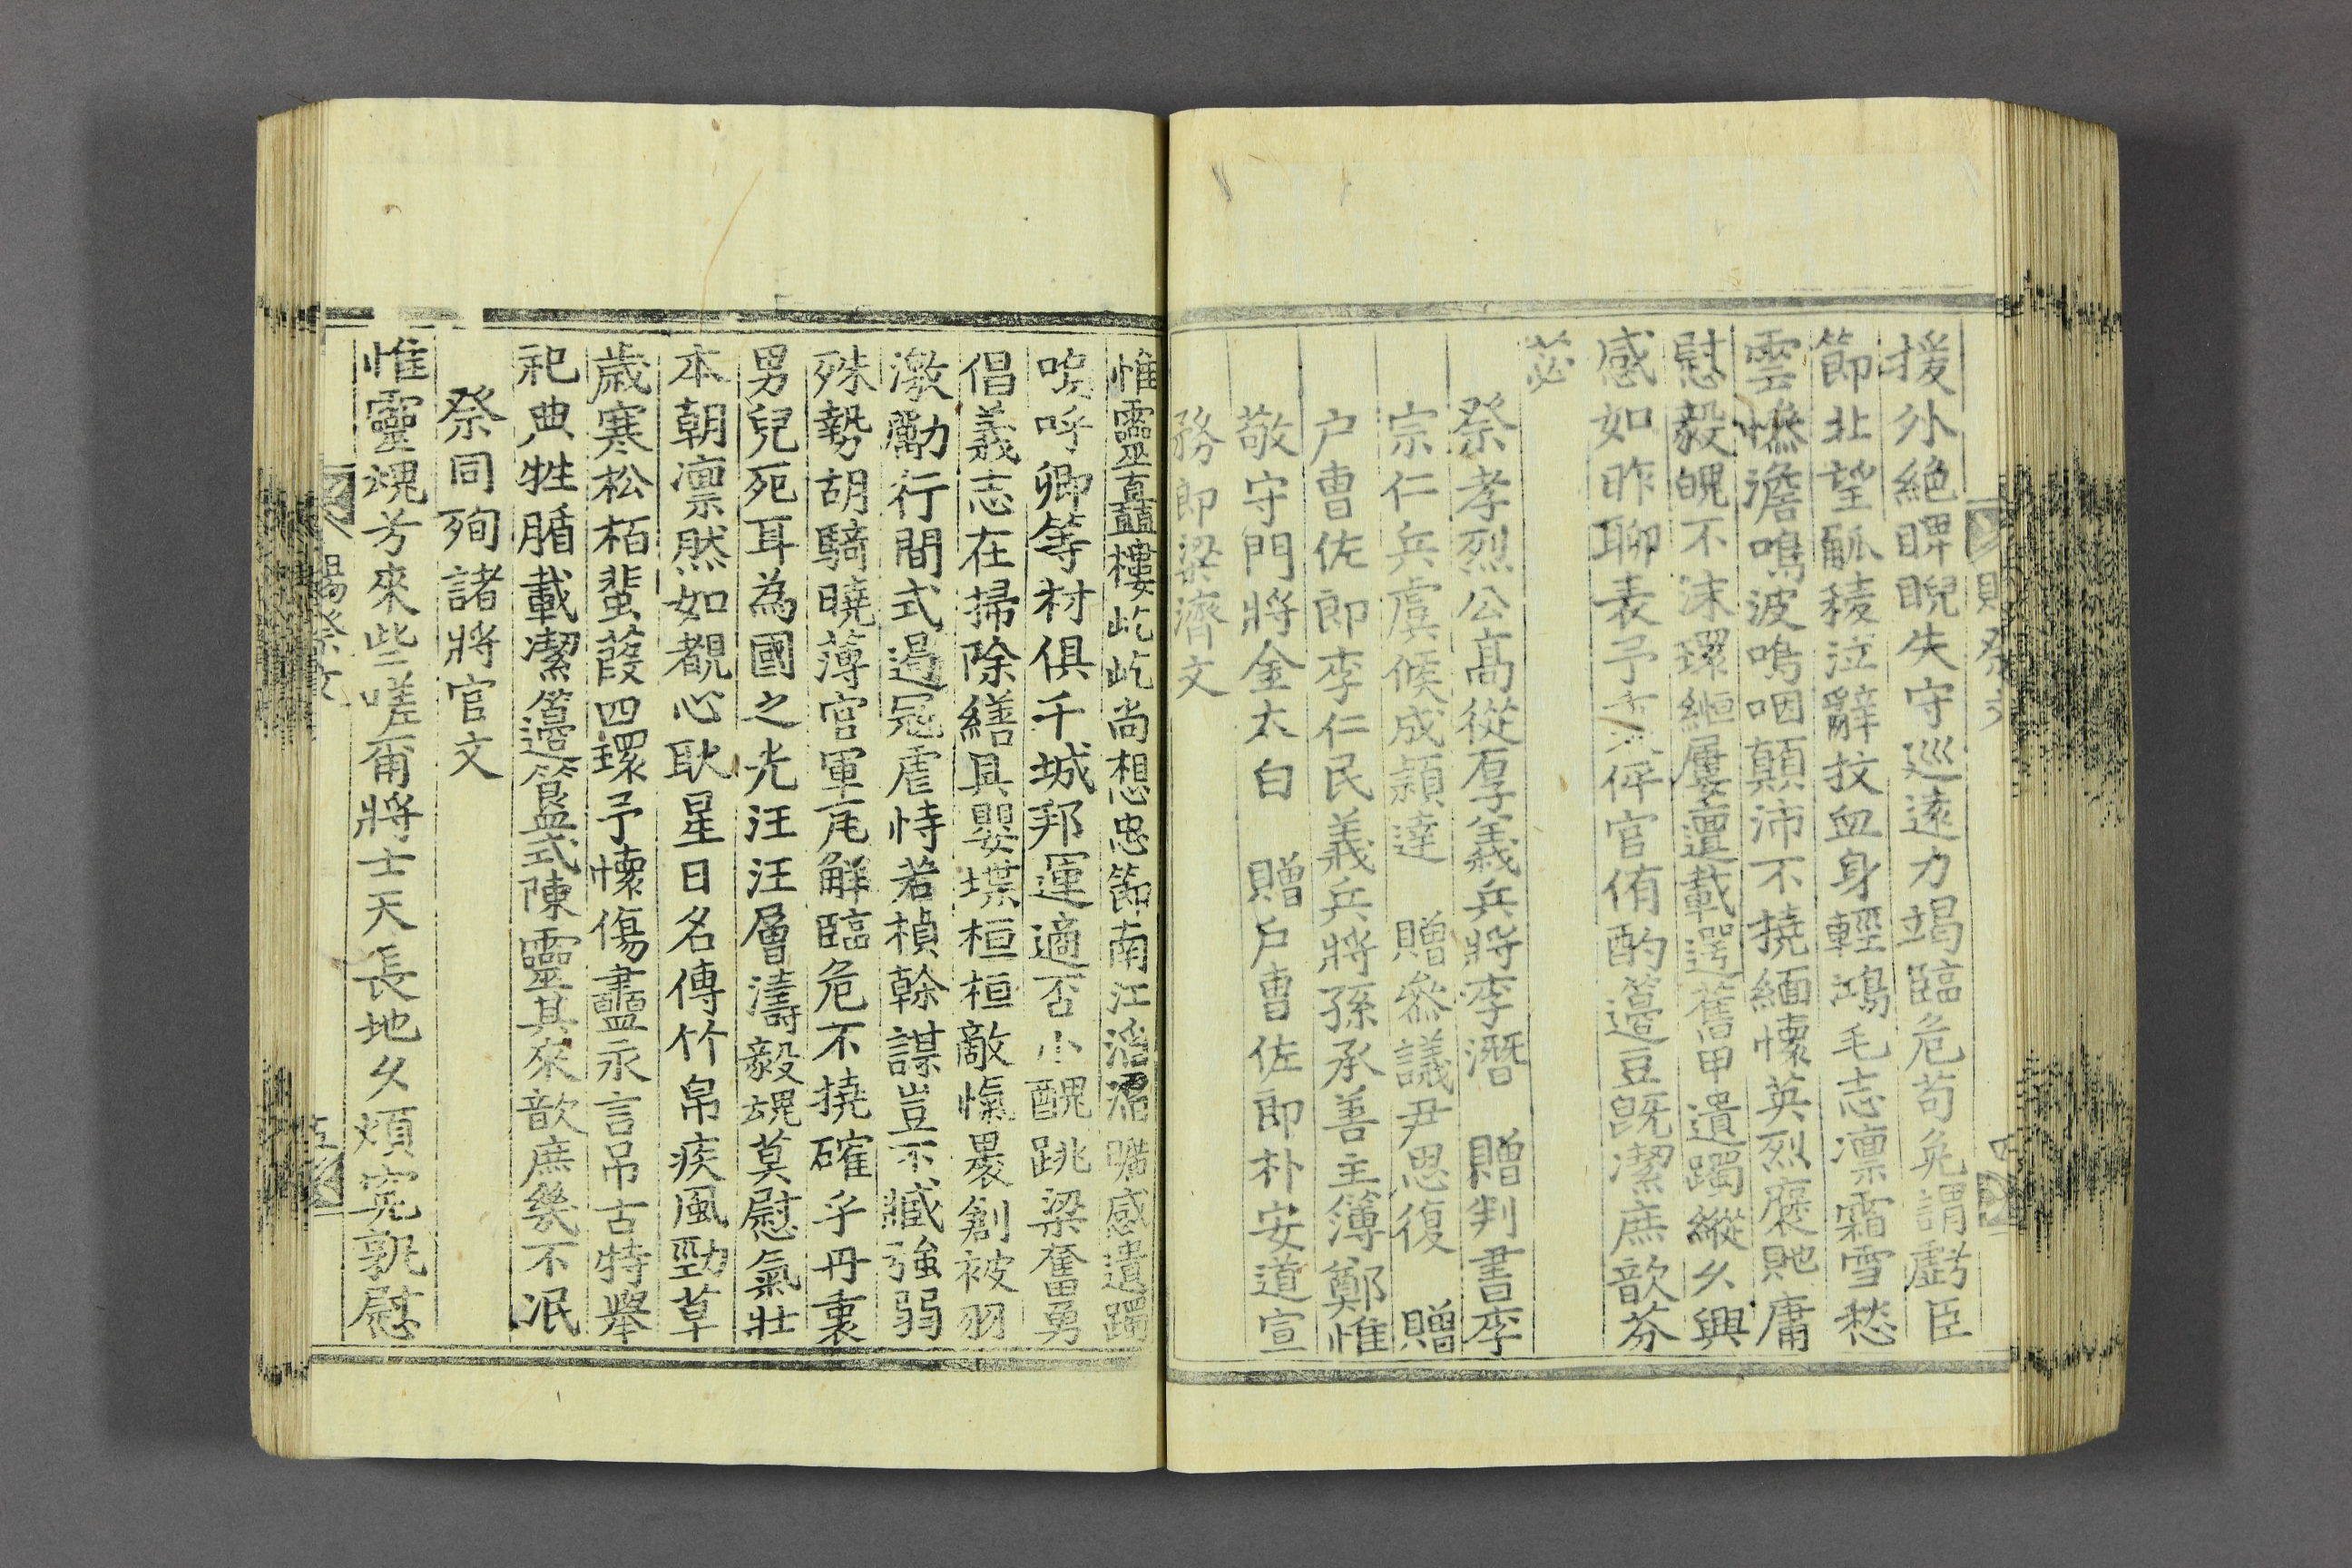 援外絶睥睨失守巡遠力竭臨危苟免謂虧臣
節北望觚稜泣辭抆血身輕鴻毛志凛霜雪愁
雲慘澹鳴波嗚咽顛沛不撓緬懷英烈褒貤庸
慰毅魄不沫環緬屢亶載選舊甲遺躅縱久興
感如昨聊表予伻官侑酌籩豆旣潔庶歆芬
苾
祭孝烈公高從厚義兵將李潛 贈判書李
宗仁兵虞候成頴達 贈參議尹思復 贈
户曹佐郞李仁民義兵將孫承善主簿鄭惟
敬守門將金太白 贈户曹佐郞朴安道宣
務郞梁濟文
惟靈矗矗樓屹屹尚想忠節南江滔滔曠感遺躅
嗚呼卿等材俱干城邦運適否小醜跳梁奮勇
倡義志在掃除繕具嬰堞桓桓敵愾褁創被羽
激勵行間式遏冦虐恃若楨榦謀豈不臧強弱
殊勢胡騎曉薄官軍瓦解臨危不撓確乎丹裏
男兒死耳為國之光汪汪層濤毅魄莫慰氣壯
本朝凛然如覩心耿星日名傳竹帛疾風勁草
歲寒松栢蜚葭四環予懷傷衋永言吊古特擧
祀典牲腯載潔籩簋式陳靈其來歆庶幾不泯
祭同殉諸將官文
惟靈魂兮來些嗟爾將士天長地久煩寃孰慰
賜祭文
五
賜祭文
四